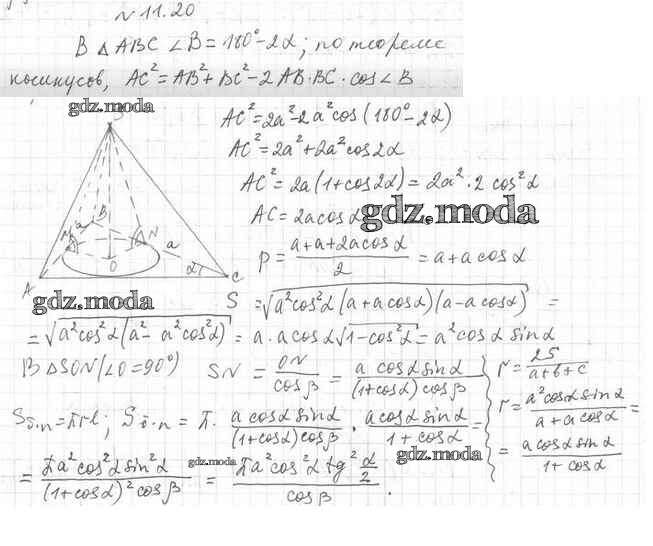 № 11.20
В △ ABC ∠B = 180° - 2α; по теореме
косинусов, AC² = AB² + BC² - 2 AB·BC · cos∠B
gdz.moda
S
AC² = 2a² - 2a² cos(180° - 2α)
AC² = 2a² + 2a² cos 2α
AC² = 2a(1 + cos 2α) = 2a² · 2 cos² α
AC = 2a cos α
gdz.moda
P = (a + a + 2a cos α)/2 = a + a cos α
B
a
M
N
a
O
α
A
C
gdz.moda
S = √(a² cos² α (a + a cos α)(a - a cos α)) =
= √(a² cos² α (a² - a² cos² α)) = a · a cos α √(1 - cos² α) = a² cos α sin α
В △ SON (∠O = 90°) SN = ON/cos β = (a cos α sin α)/((1 + cos α) cos β)
r = 2S/(a + b + c)
r = (a² cos α sin α)/(a + a cos α) =
= (a cos α sin α)/(1 + cos α)
Sб.п = πrl; Sб.п = π · (a cos α sin α)/((1 + cos α) cos β) · (a cos α sin α)/(1 + cos α) =
gdz.moda
gdz.moda
= (πa² cos² α sin² α)/((1 + cos α)² cos β) = (πa² cos² α tg² α/2)/cos β .